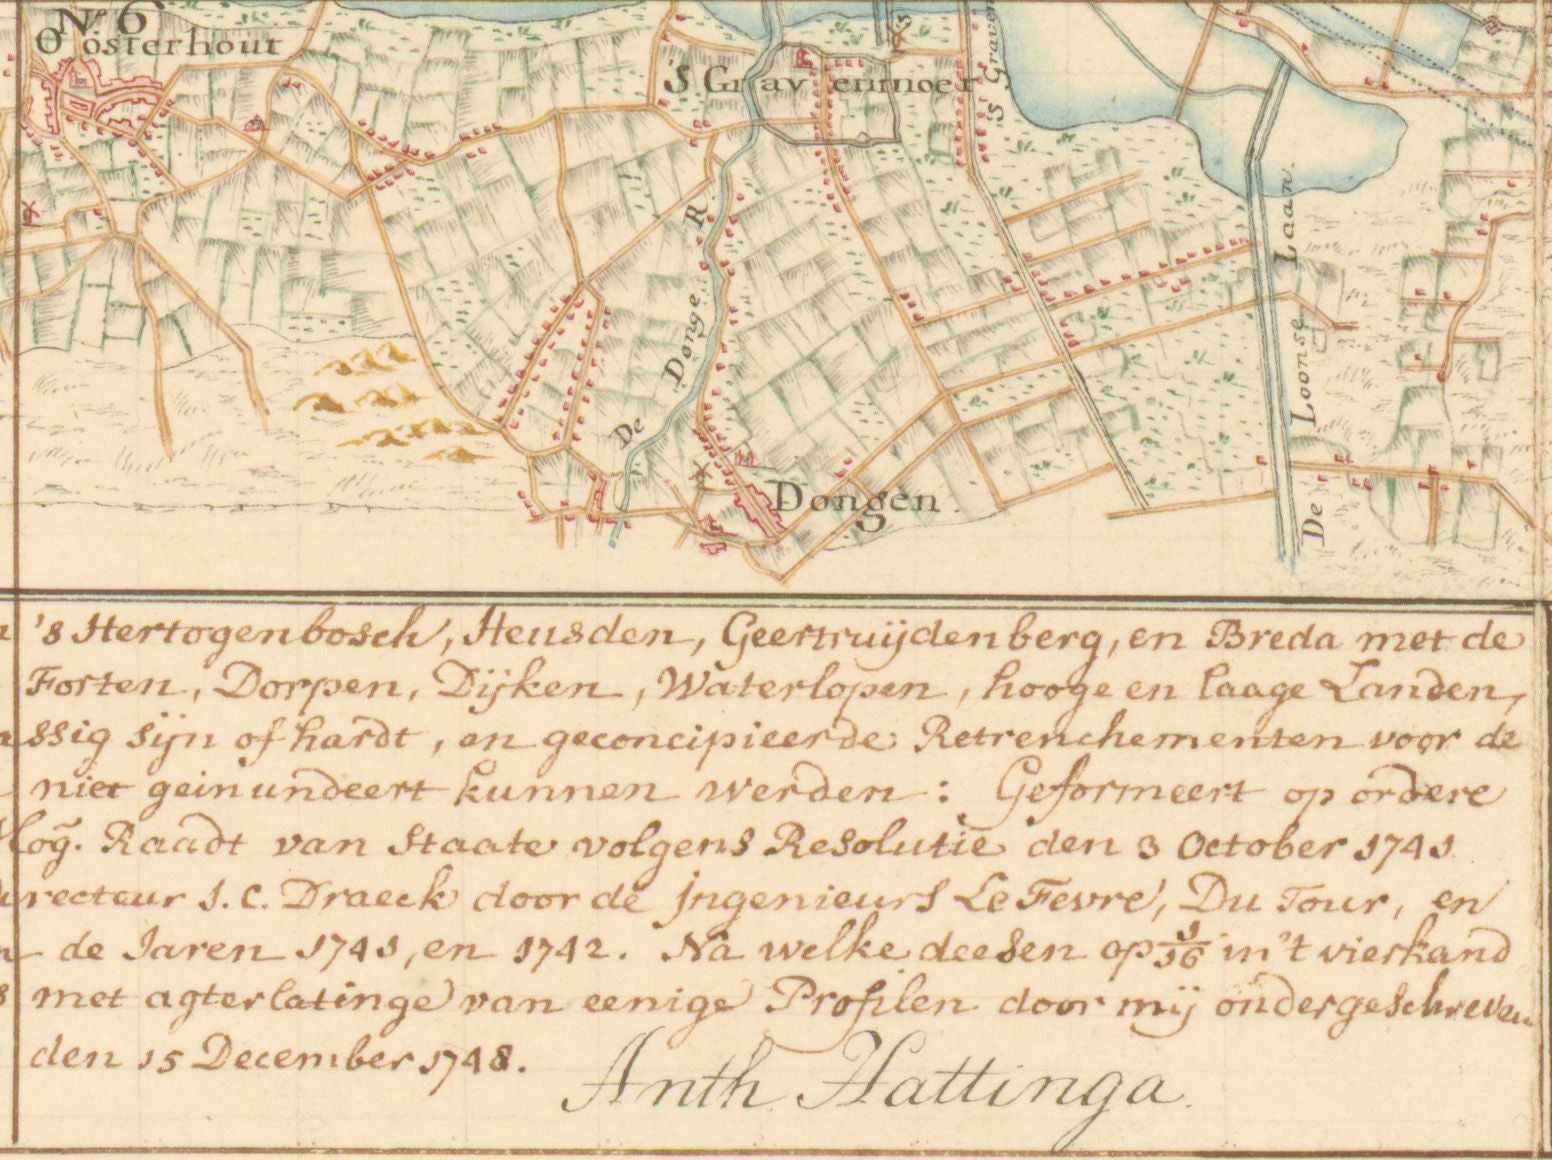 No 6
Oosterhout
'S Gravenmoer
's Graven
De Donge R
De Loonse Laan
Dongen
's Hertogenbosch, Heusden, Geertruijdenberg, en Breda met de
Forten, Dorpen, Dijken, Waterlopen, hooge en laage Landen,
ssig sijn of hardt, en geconcipieerde Retrenchementen voor de
niet geinundeert kunnen werden: Geformeert op ordere
Hog. Raadt van Staate volgens Resolutie den 3 October 1741
irecteur J. C. Draeck door de Jngenieurs Le Fevre, Du Tour, en
de Jaren 1741, en 1742. Na welke deesen op 1/16 in 't vierkand
met agterlatinge van eenige Profilen door mij ondergeschreven
den 15 December 1748.
Anth Hattinga.